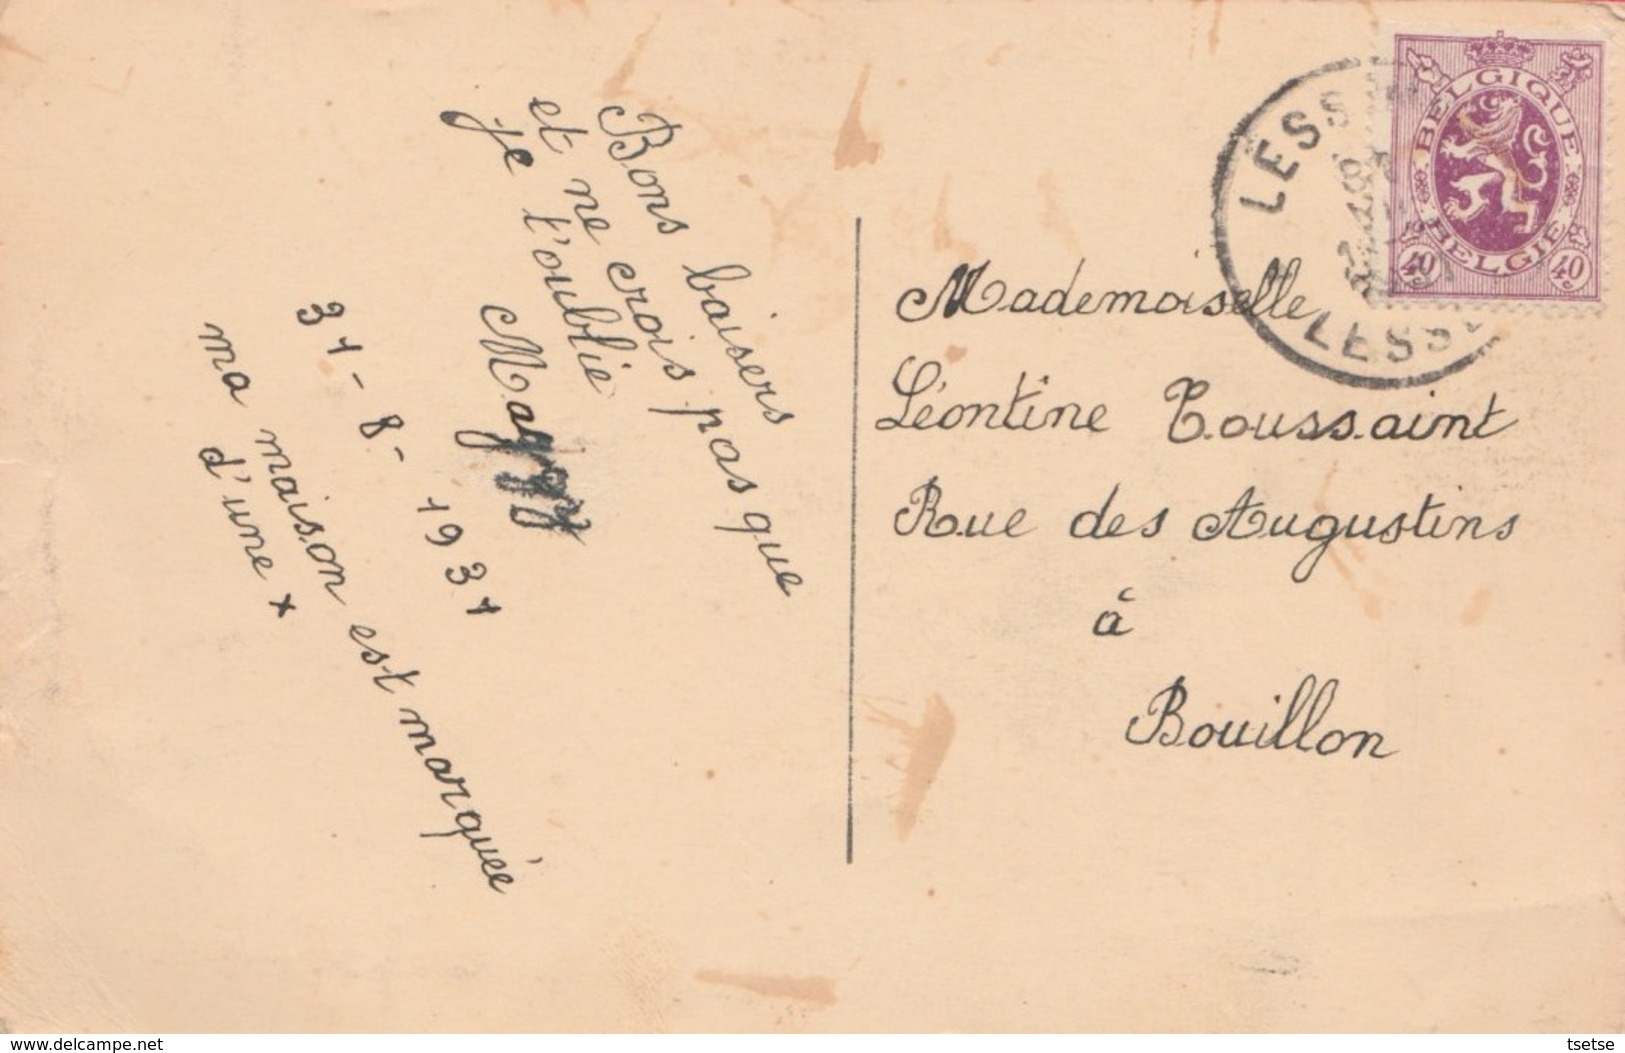 Bons baisers
et ne crois pas que
je t'oublie
Maggy
31-8-1931
ma maison est marquée
d'une x
BELGIQUE
BELGIE
40c 40c
Mademoiselle
Léontine Toussaint
Rue des Augustins
à
Bouillon
www.delcampe.net
tsetse